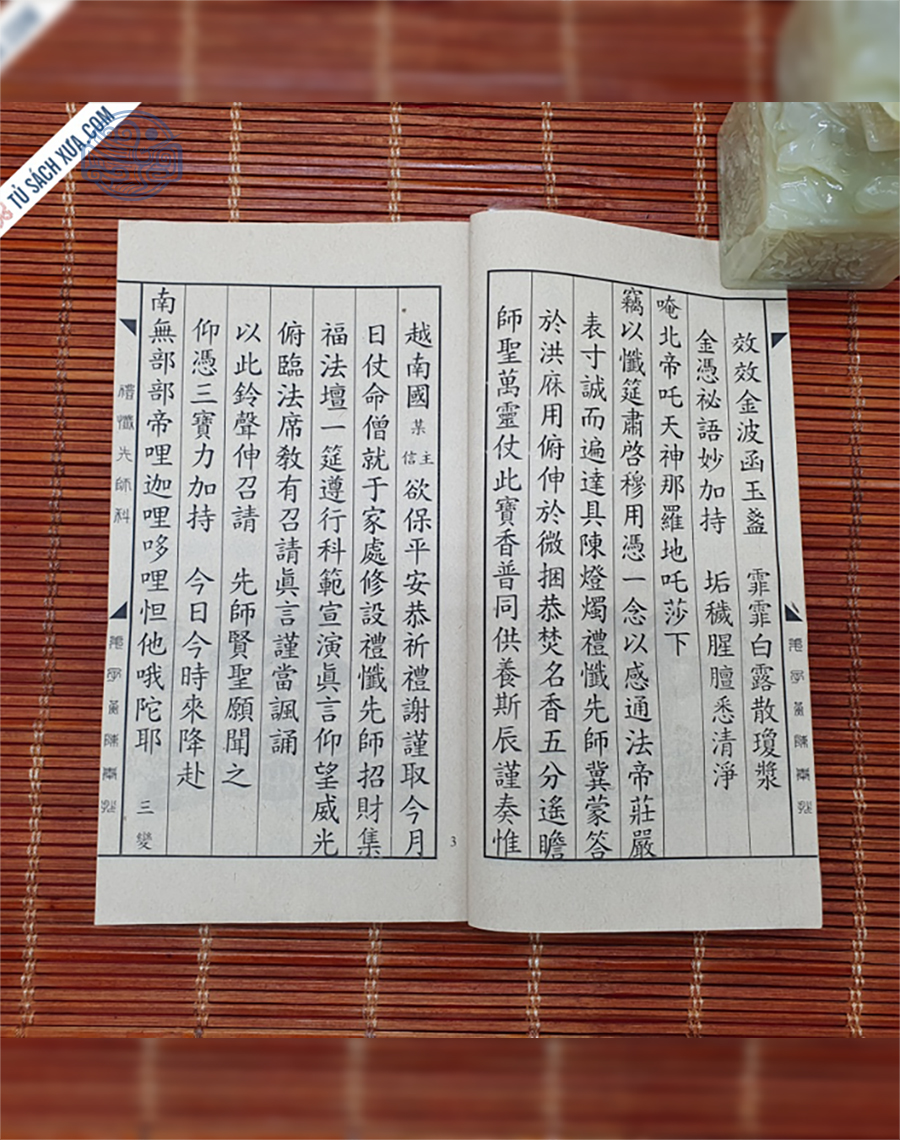 TỦ SÁCH XƯA.COM
效效金波函玉盞　霏霏白露散瓊漿
金憑祕語妙加持　垢穢腥膻悉清淨
唵北帝吒天神那羅地吒莎下
竊以懺筵肅啓穆用憑一念以感通法帝莊嚴
表寸誠而遍達具陳燈燭禮懺先師冀蒙答
於洪庥用俯伸於微捆恭焚名香五分遙瞻
師聖萬靈仗此寶香普同供養斯辰謹奏惟
越南國某信主欲保平安恭祈禮謝謹取今月
日仗命僧就于家處修設禮懺先師招財集
福法壇一筵遵行科範宣演眞言仰望威光
俯臨法席教有召請眞言謹當諷誦
以此鈴聲伸召請　先師賢聖願聞之
仰憑三寶力加持　今日今時來降赴
南無部部帝哩迦哩哆哩怛他哦陀耶　三變
禮懺先師科
3